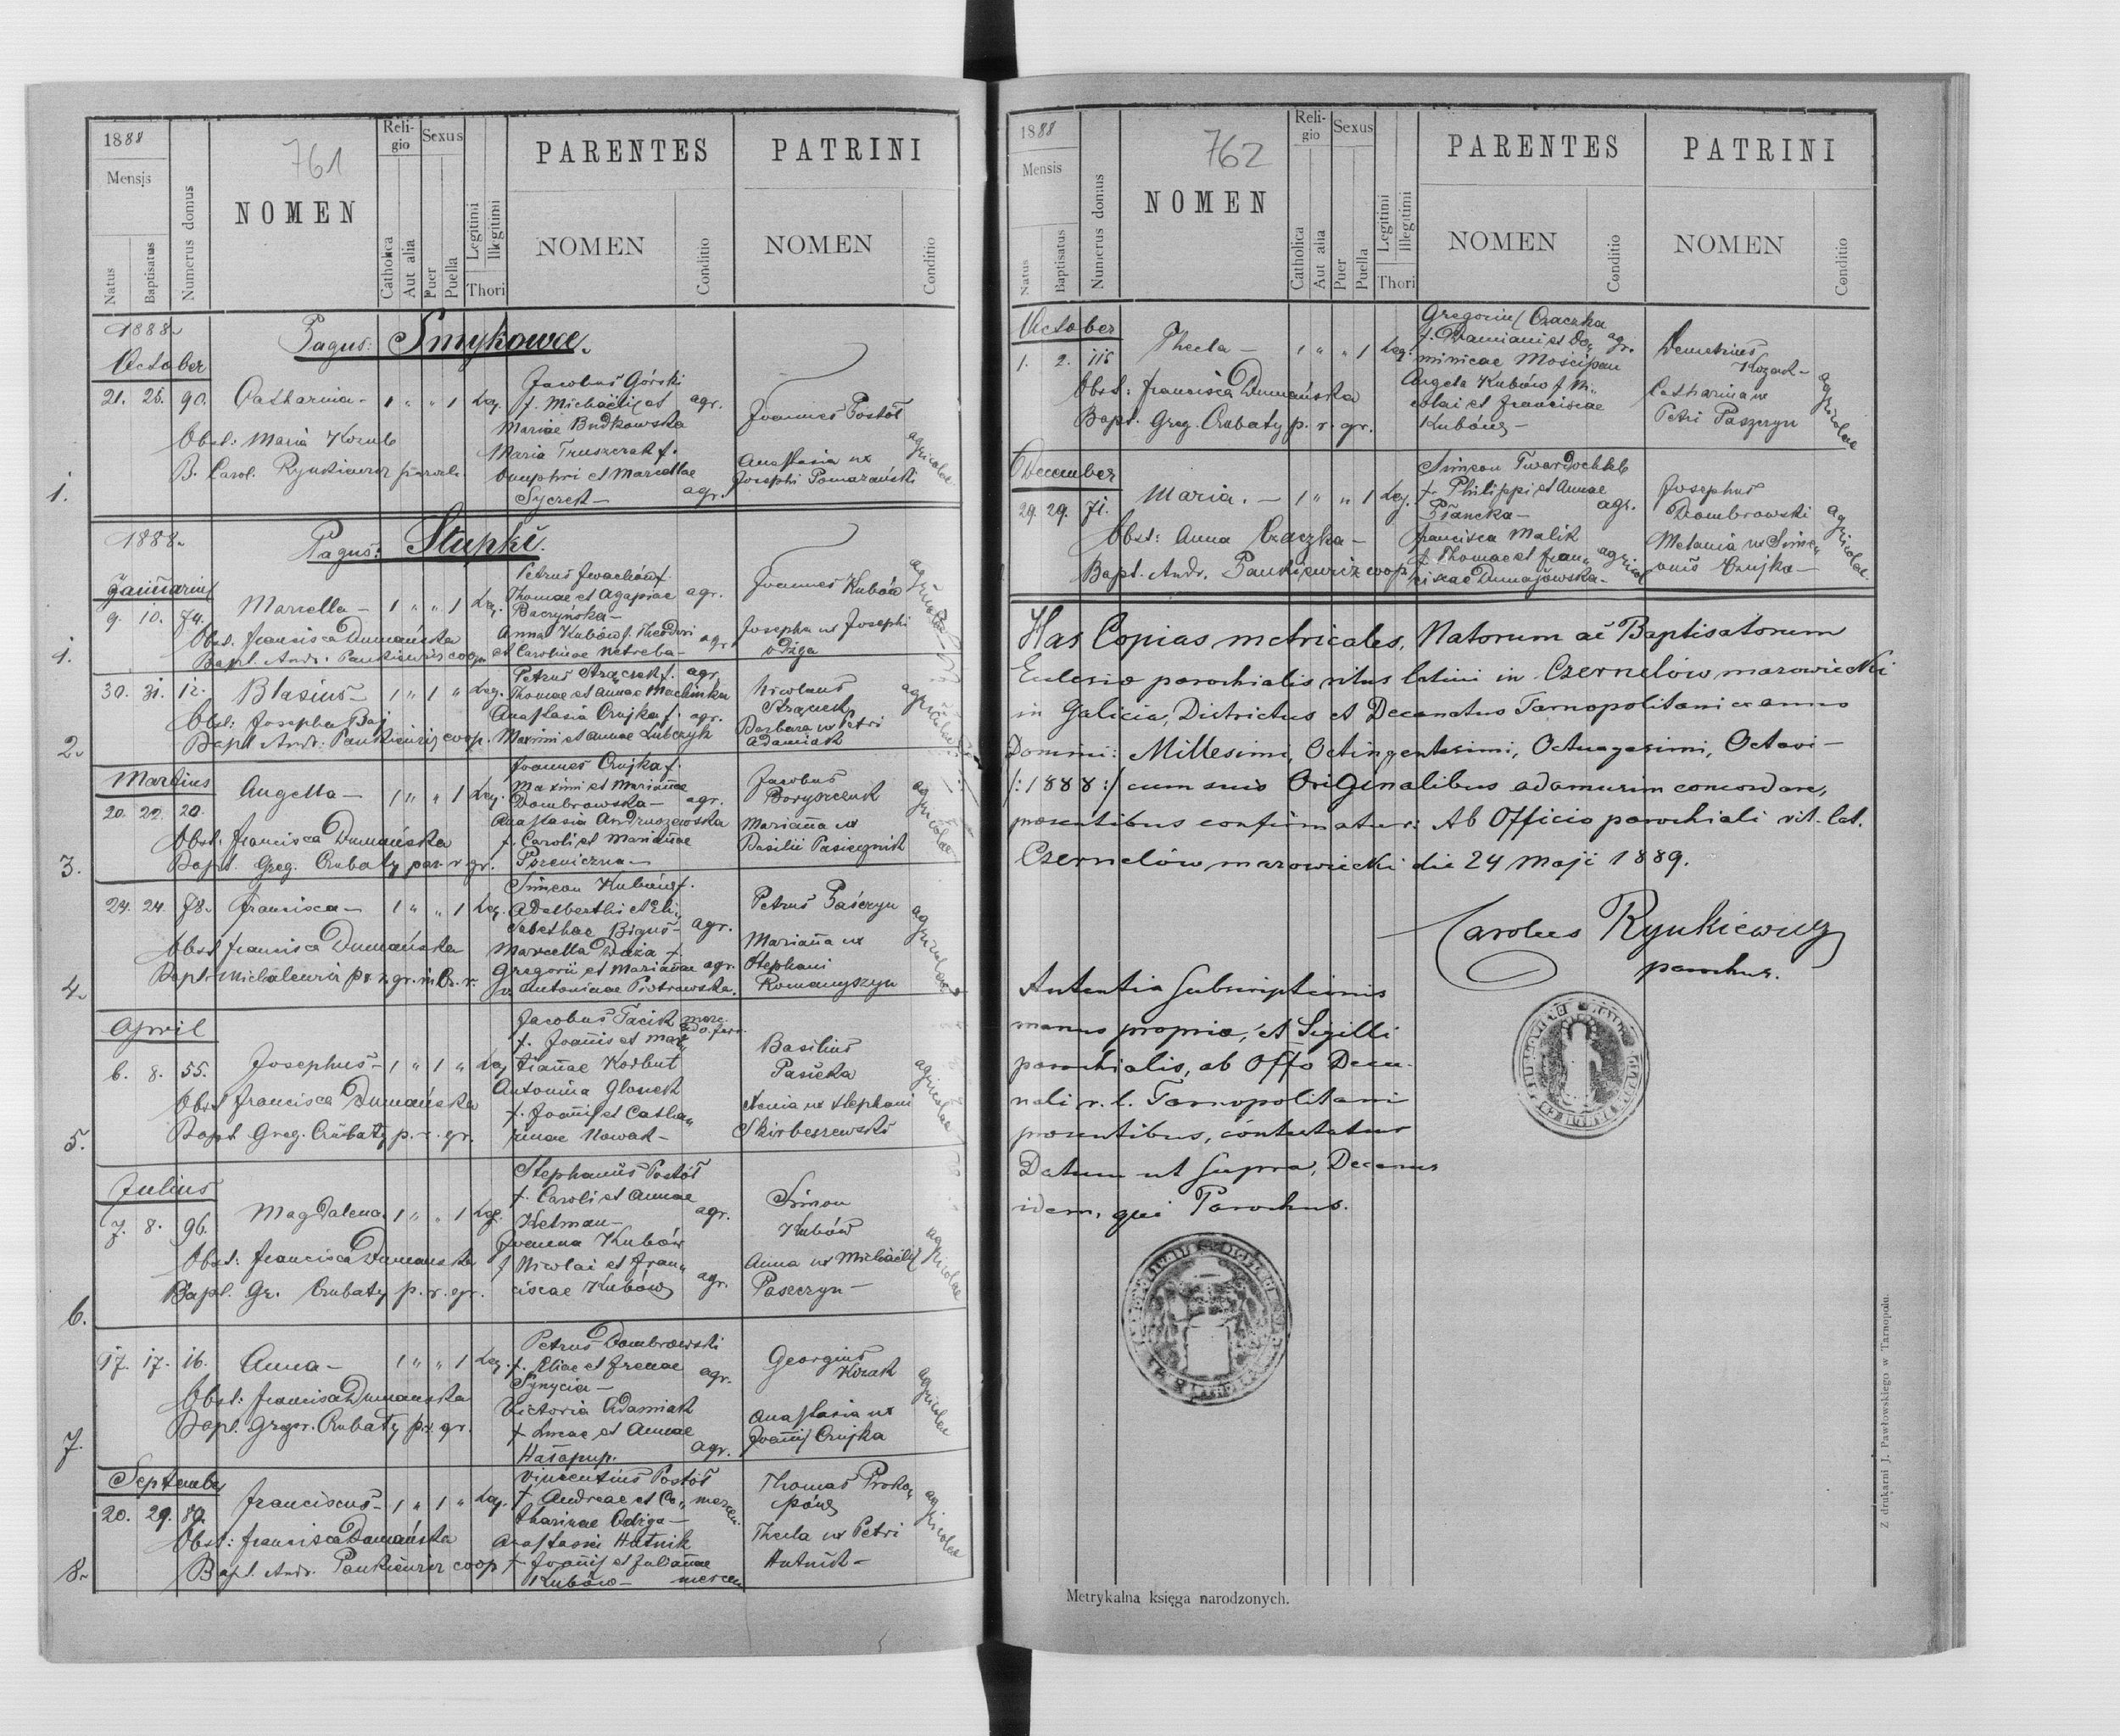 1888
Mensis
Natus
Baptisatus
Numerus domus
761
NOMEN
Religio
Catholica
Aut alia
Sexus
Puer
Puella
Legitimi
Illegitimi
Thori
PARENTES
NOMEN
Conditio
PATRINI
NOMEN
Conditio
1888.
Pagus: Smykowce.
October
21. 25. 90. Catharina - 1 " " 1 Leg.
Jacobus Górski
f. Michaëlis et agr.
Mariae Budkowska
Maria Truszczak f.
Onuphri et Marcellae
Syczek - agr.
Joannes Postół
Anastasia ux
Josephi Pomazański
agricolae
Obst: Maria Kozub
B. Carol. Rynkiewicz paroch.
1.
1888.
Pagus: Stupki.
Januarius
9. 10. 74. Marcella - 1 " " 1 Leg.
Petrus Iwachów f.
Thomae et Agapiae agr.
Baczyńska -
Anna Kubów f. Theodori agr.
et Carolinae Netreba -
Joannes Kubów
Josepha ux Josephi
Odzga
agricolae
Obst. Francisca Dumańska
Bapt. Andr. Pankiewicz coop.
1.
30. 31. 12. Blasius - 1 " 1 " Leg.
Petrus Strączek f. agr.
Thomae et Annae Machinka
Anastasia Czujka f. agr.
Maximi et Annae Lubczyk
Nicolaus
Strączek
Barbara ux Petri
Adamiak
agricolae
Obst: Josepha Baj
Bapt Andr. Pankiewicz coop.
2.
Martius
20. 22. 20. Angella - 1 " " 1 Leg.
Joannes Czujka f.
Maximi et Mariannae
Dombrowska - agr.
Anastasia Andruszewska
f. Caroli et Mariannae
Pszeniczna -
Jacobus
Boryszczuk
Marianna ux
Basilii Pasiecznik
agricolae
Obst. Francisca Dumańska
Bapt. Greg. Czubaty par. r. gr.
3.
24. 24. 78. Francisca - 1 " " 1 Leg.
Simeon Kubów f.
Adelberthi et Eli„
sabethae Biguś - agr.
Marcella Daża f.
Gregorii et Mariannae agr.
v. Antoninae Piotrowska.
Petrus Paśczyn
Marianna ux
Stephani
Romanyszyn
agricolae
Obst Francisca Dumańska
4.
April
6. 8. 55. Josephus - 1 " 1 " Leg
Jacobus Tacik
f. Joannis et Mar„
iannae Korbut
Antonina Glonek
f. Joannis et Catha„
rinae Nowak -
Basilius
Pasieka
Xenia ux Stephani
Skirbeszewski
agricolae
Obst Francisca Dumańska
Bapt. Greg. Czubaty p. r. gr.
5.
Julius
7. 8. 96. Magdalena. 1 " " 1 Leg.
Stephanus Postół
f. Caroli et Annae
Hetman - agr.
Joanna Kubów
f Nicolai et Fran„
ciscae Kubów agr.
Simon
Kubów
Anna ux Michaëlis
Paszczyn -
agricolae
Obst: Francisca Dumańska
Bapt. Gr. Czubaty p. r. gr.
6.
17. 17. 16. Anna - 1 " " 1 Leg.
Petrus Dombrowski
f. Eliae et Irenae agr.
Synycia -
Victoria Adamiak
f Lucae et Annae
Hałapup. agr.
Georgius
Kozak
Anastasia ux
Joannis Czujka
agricolae
Obst: Francisca Dumańska
Bapt. Gregor. Czubaty p. r. gr.
7.
September
20. 29. 89. Franciscus - 1 " 1 " Leg.
Vincentius Postół
f. Andreae et Ca„
tharinae Odzga -
Anastasia Hutnik
f Joannis et Juliannae
Kubów - mercen
Thomas Proko„
pów
Thecla ux Petri
Hutnik -
agricolae
Obst: Francisca Dumańska
Bapt. Andr. Pankiewicz coop
8.
1888
Mensis
Natus
Baptisatus
Numerus domus
762
NOMEN
Religio
Catholica
Aut alia
Sexus
Puer
Puella
Legitimi
Illegitimi
Thori
PARENTES
NOMEN
Conditio
PATRINI
NOMEN
Conditio
October
1. 2. 115 Thecla - 1 " " 1 Leg.
Gregorius Czaczka
f. Damiani et Do„ agr.
minicae Mościpan
Angela Kubów f. Ni„
colai et Franciscae
Kubów -
Demetrius
Kozak -
Catharina ux
Petri Paszczyn
agricolae
Obst: Francisca Dumańska
Bapt. Greg. Czubaty p. r. gr.
December
29. 29. 71. Maria. - 1 " " 1 Leg.
Simeon Twardochleb
f. Philippi et Annae
agr.
Francisca Malik
f. Thomae et Fran„ agricol
ciscae Dunajowska -
Josephus
Dombrowski
Melania ux Sime„
onis Czujka -
agricolae
Obst: Anna Czaczka -
Bapt. Andr. Pankiewicz coop.
Has Copias metricales, Natorum ac Baptisatorum
Eclesiæ parochialis ritus latini in Czernelów mazowiecki
in Galicia, Districtus et Decanatus Tarnopolitani ex anno
Domini: Millesimi, Octingentesimi, Octuagesimi, Octavi -
/:1888:/ cum suis Originalibus adamusim concordare,
præsentibus confirmatur: Ab Officio parochiali rit. lat.
Czernelów mazowiecki die 24 Maji 1889.
Carolus Rynkiewicz
parochus.
Autentia Subscriptionis
manus propriæ, et Sigilli
parochialis, ab Offo Deca-
nali r. l. Tarnopolitani
præsentibus, contestatur
Datum ut Supra, Decanus
idem, qui Parochus.
Metrykalna księga narodzonych.
Z drukarni J. Pawłowskiego w Tarnopolu.